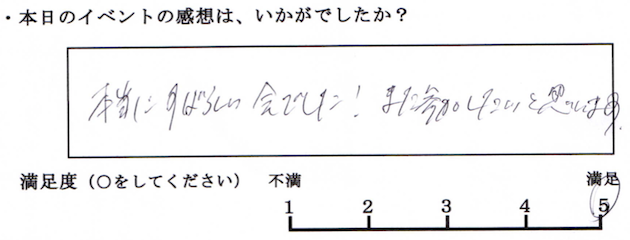 ・本日のイベントの感想は、いかがでしたか？
本当にすばらしい会でした！また参加したいと思います。
満足度（○をしてください） 不満 満足
1 2 3 4 5